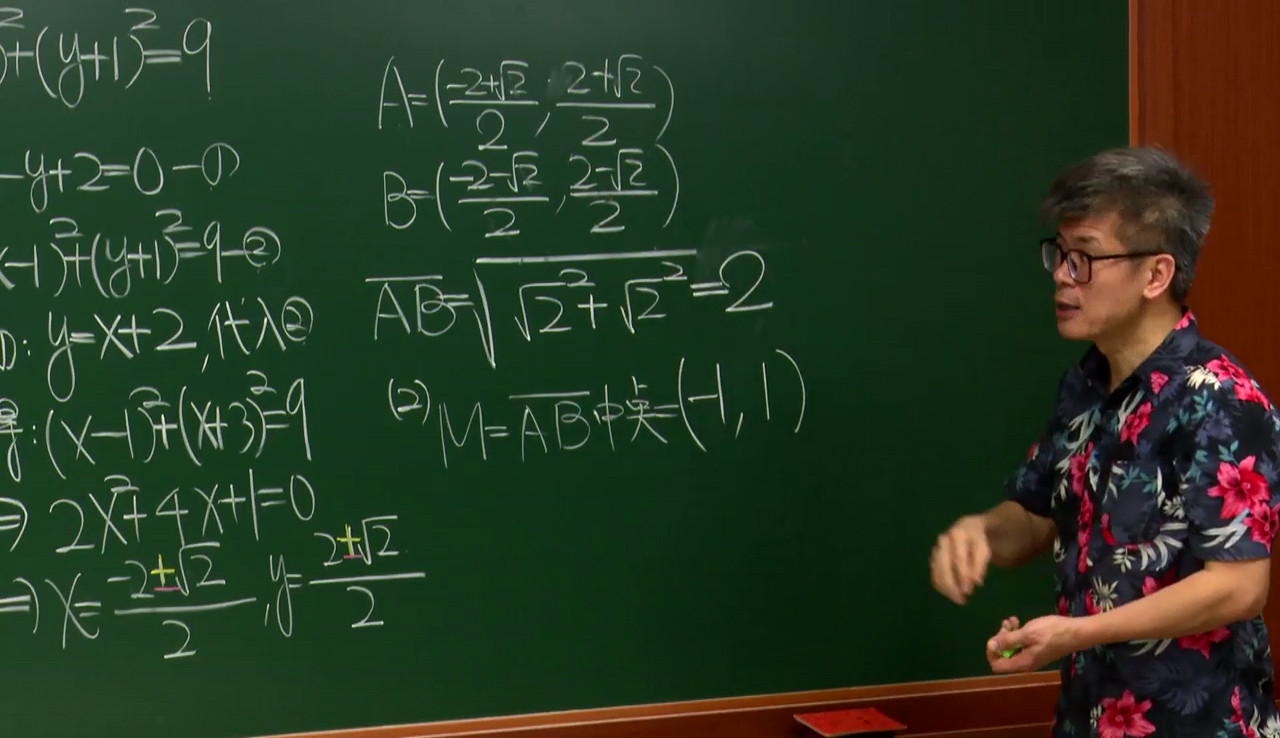 )²+(y+1)²=9
-y+2=0-①
x-1)²+(y+1)²=9-②
①: y=x+2,代入②
得:(x-1)²+(x+3)²=9
⇒ 2x²+4x+1=0
⇒ x=(-2±√2)/2 , y=(2±√2)/2
A=((-2+√2)/2, (2+√2)/2)
B=((-2-√2)/2, (2-√2)/2)
A̅B̅=√(√2²+√2²)=2
(2) M=A̅B̅中点=(-1,1)